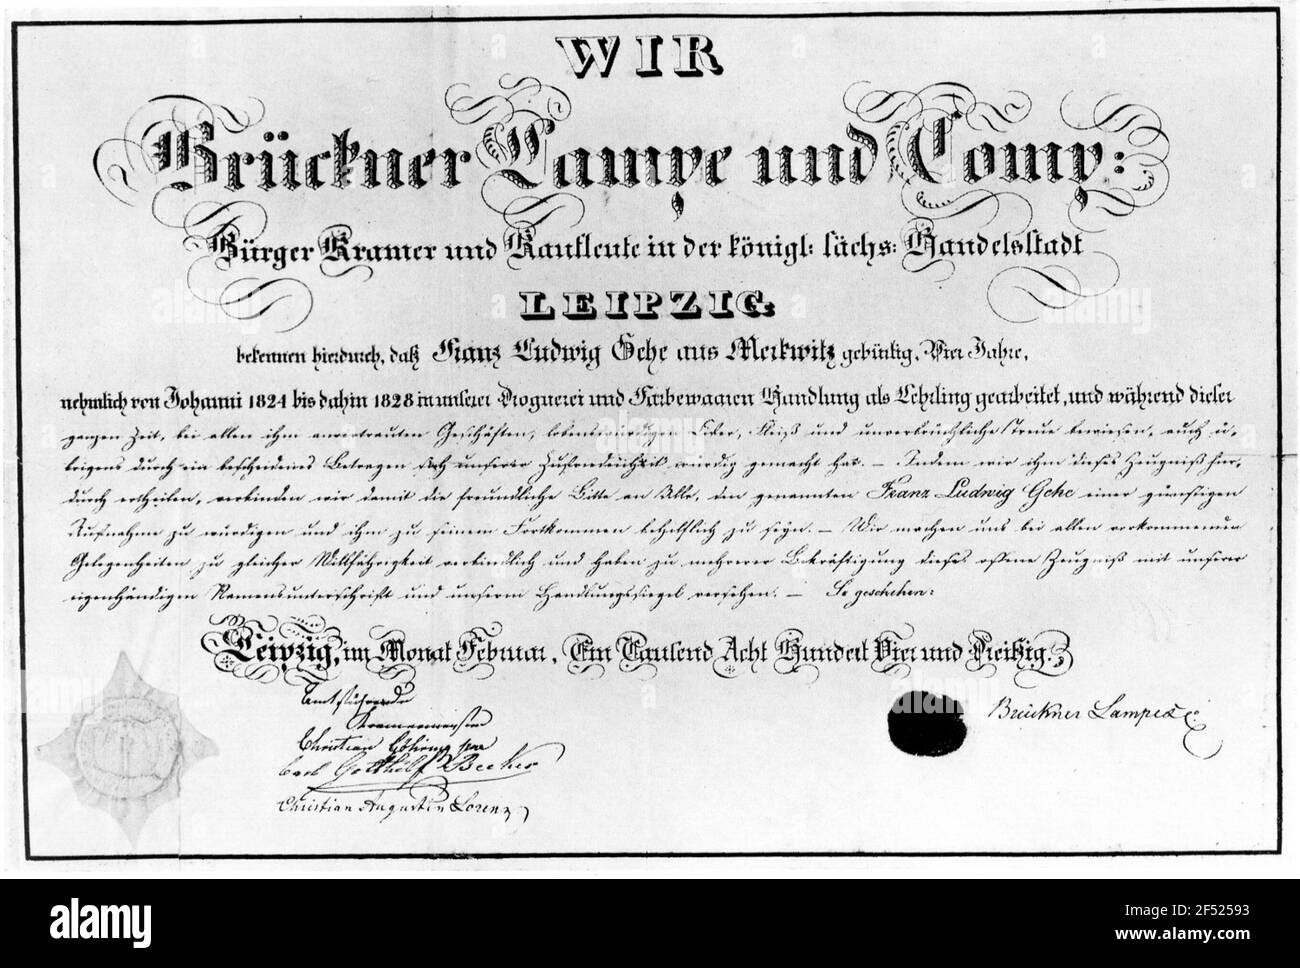 WIR
Brückner Lampe und Comp:
Bürger Kramer und Kaufleute in der königl: sächs: Handelsstadt
LEIPZIG:
bekennen hierdurch, daß Franz Ludwig Gehe aus Merkwitz gebürtig, Vier Jahre,
nehmlich von Johanni 1824 bis dahin 1828 in unserer Droguerei und Farbewaaren Handlung als Lehrling gearbeitet, und während dieser
ganzen Zeit, bei allen ihm anvertrauten Geschäften, lobenswürdigen Eifer, Fleiß und unverbrüchliche Treue bewiesen, auch ü,
brigens durch ein bescheidenes Betragen sich unserer Zufriedenheit würdig gemacht hat. – Indem wir ihm dieses Zeugniß hier,
durch ertheilen, verbinden wir damit die freundliche Bitte an Alle, den genannten Franz Ludwig Gehe einer günstigen
Aufnahme zu würdigen und ihm zu seinem Fortkommen behülflich zu seyn. – Wir machen uns bei allen vorkommenden
Gelegenheiten zu gleicher Willfährigkeit verbindlich und haben zu mehrerer Bekräftigung dieses offene Zeugniß mit unserer
eigenhändigen Namensunterschrift und unserm Handlungssiegel versehen. – So geschehen:
Leipzig, im Monat Februar, Ein Tausend Acht Hundert Vier und Dreißig.
Amtführende
Kramermeister
Christian Göhring
Carl Gotthelf Becker
Christian Augustin Lorenz
Brückner Lampe & C:
alamy
Image ID: 2F52593
www.alamy.com